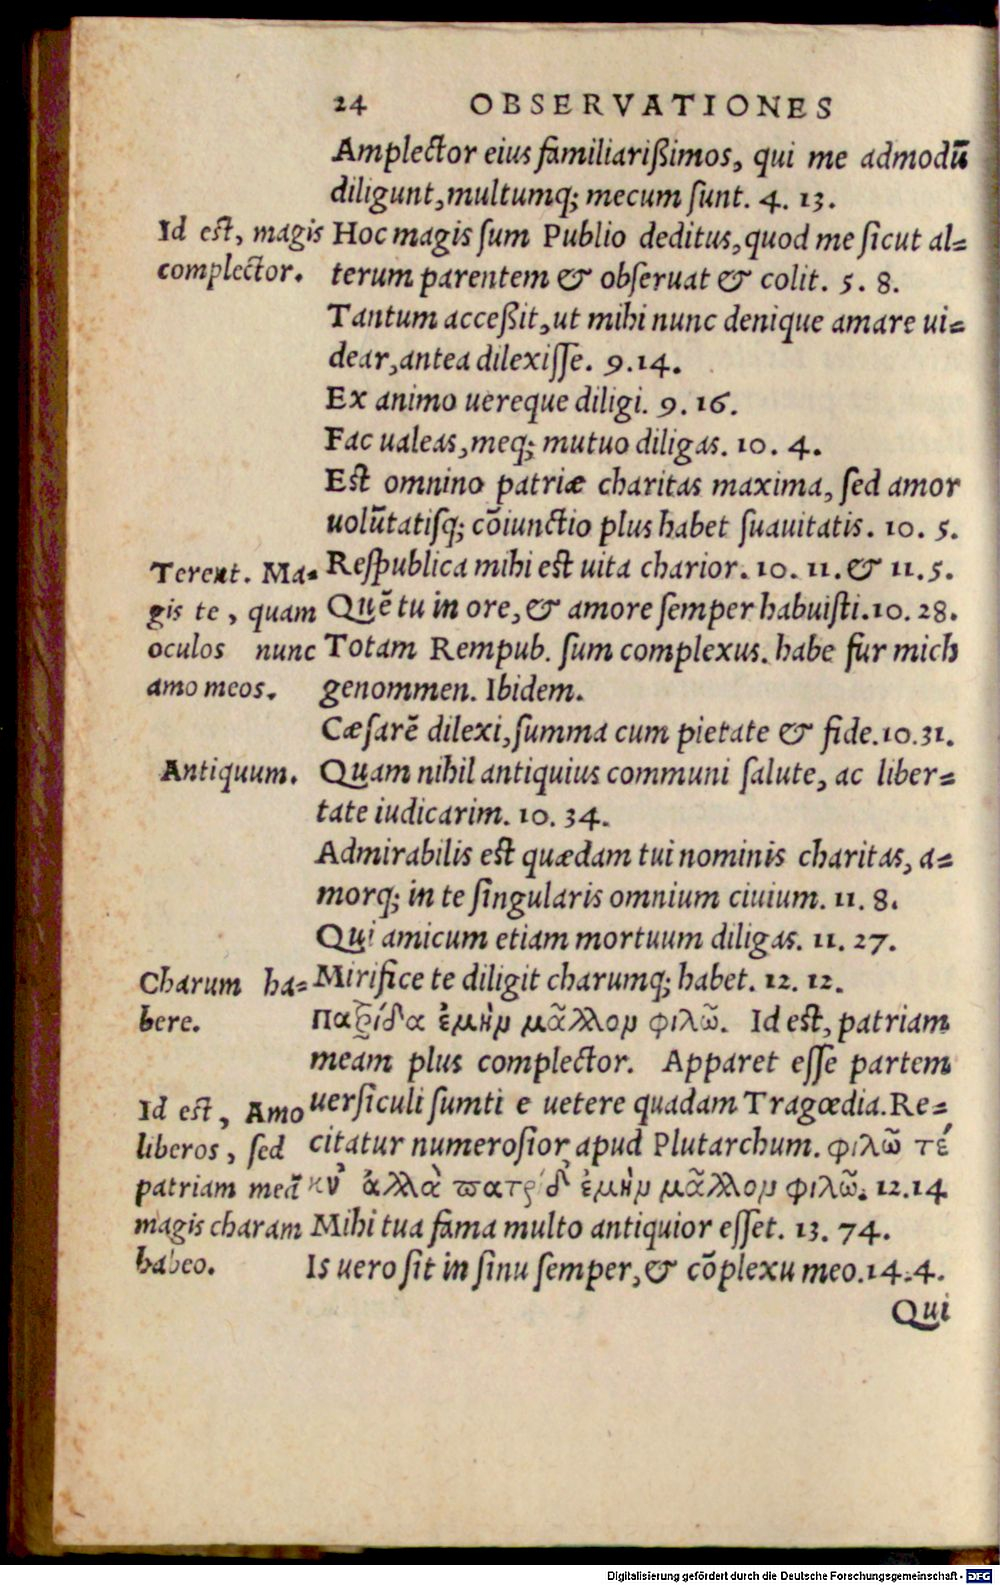 24 OBSERVATIONES
Amplector eius familiarißimos, qui me admodū
diligunt, multumq; mecum ſunt. 4. 13.
Id eſt, magis
complector.
Hoc magis ſum Publio deditus, quod me ſicut al=
terum parentem & obſeruat & colit. 5. 8.
Tantum acceßit, ut mihi nunc denique amare ui=
dear, antea dilexiſſe. 9.14.
Ex animo uereque diligi. 9. 16.
Fac ualeas, meq; mutuo diligas. 10. 4.
Eſt omnino patriæ charitas maxima, ſed amor
uolūtatiſq; cōiunctio plus habet ſuauitatis. 10. 5.
Terent. Ma=
gis te, quam
oculos nunc
amo meos.
Reſpublica mihi eſt uita charior. 10. 11. & 11. 5.
Quē tu in ore, & amore ſemper habuiſti. 10. 28.
Totam Rempub. ſum complexus. habe fur mich
genommen. Ibidem.
Cæſarē dilexi, ſumma cum pietate & fide. 10. 31.
Antiquum.
Quam nihil antiquius communi ſalute, ac liber=
tate iudicarim. 10. 34.
Admirabilis eſt quædam tui nominis charitas, a=
morq; in te ſingularis omnium ciuium. 11. 8.
Qui amicum etiam mortuum diligas. 11. 27.
Charum ha=
bere.
Mirifice te diligit charumq; habet. 12. 12.
Πατρίδα ἐμὴν μᾶλλον φιλῶ. Id eſt, patriam
meam plus complector. Apparet eſſe partem
Id eſt, Amo
liberos, ſed
patriam meā
magis charam
habeo.
uerſiculi ſumti e uetere quadam Tragœdia. Re=
citatur numeroſior apud Plutarchum. φιλῶ τέ
κν᾽ ἀλλὰ πατρίδ᾽ ἐμὴν μᾶλλον φιλῶ. 12.14
Mihi tua fama multo antiquior eſſet. 13. 74.
Is uero ſit in ſinu ſemper, & cōplexu meo. 14. 4.
Qui
Digitalisierung gefördert durch die Deutsche Forschungsgemeinschaft - DFG